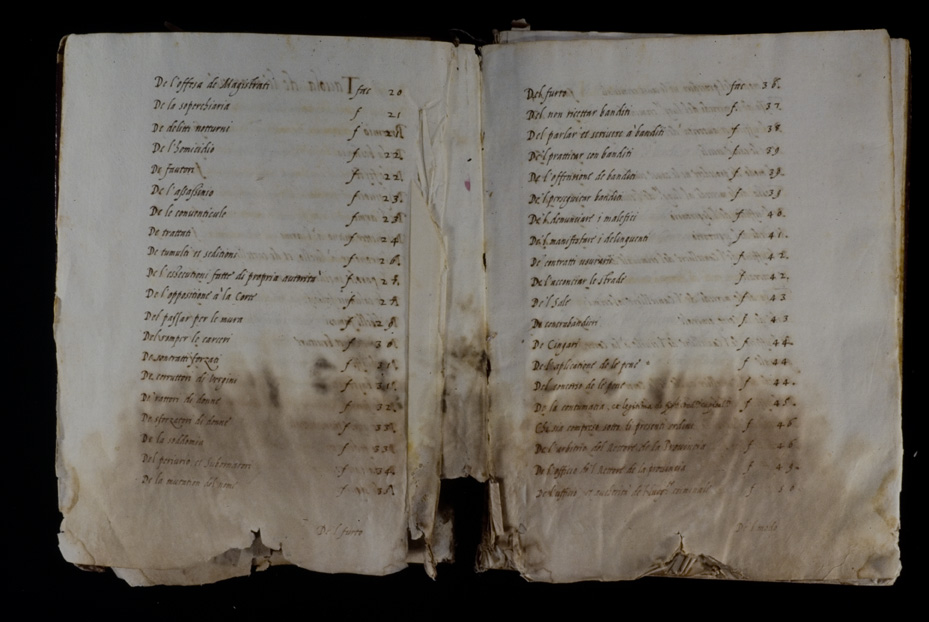 De l'offesa de Magistrati fac 20
De la soperchiaria f 21
De delitti notturni f
De l'homicidio f 22
De fautori f 22
De l'assassinio f 23
De le conventicule f 23
De trattati f 24
De tumulti et seditioni f 26
De l'essecutioni fatte di propria autorità f 27
De l'oppositione à la Corte f
Del passar per le mura f
Del romper le carceri f 30
De contratti forzati f
De corruttori di Vergini f
De rattori di donne f 32
De sforzatori di donne f
De la soddomia f
Del periurio et subornatori f 34
De la mutation del nome f
De l furto
Del furto fac 36
Del non ricettar banditi f 37
Del parlar et scrivere à banditi f 38
Del pratticar con banditi f 39
De l'offensione de banditi f 39
Del perseguitar banditi f 39
Del denunciare i malefici f 40
Del manifestare i delinquenti f
De contratti usurarii f 42
De l'acconciar le strade f 42
De l Sale f 43
De contrabandieri f 43
De Cingari f 44
De l'aplicatione de le pene f 44
Del concorso de le pene f 44
De la contumacia f 45
Chi sia compreso sotto li presenti ordini f 46
De l'arbitrio del Rettore de la Provincia f 46
De l'officio del Rettore de la provincia f 49
De l'officio et f
De l modo